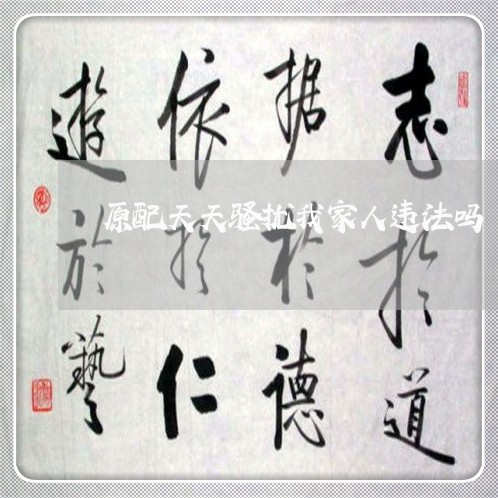 志於道
据於德
依於仁
遊於藝
原配天天骚扰我家人违法吗